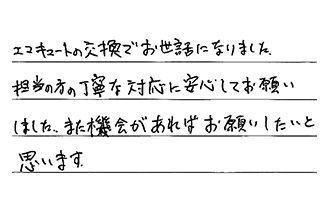 エコキュートの交換でお世話になりました。
担当の方の丁寧な対応に安心してお願い
しました。また機会があればお願いしたいと
思います。